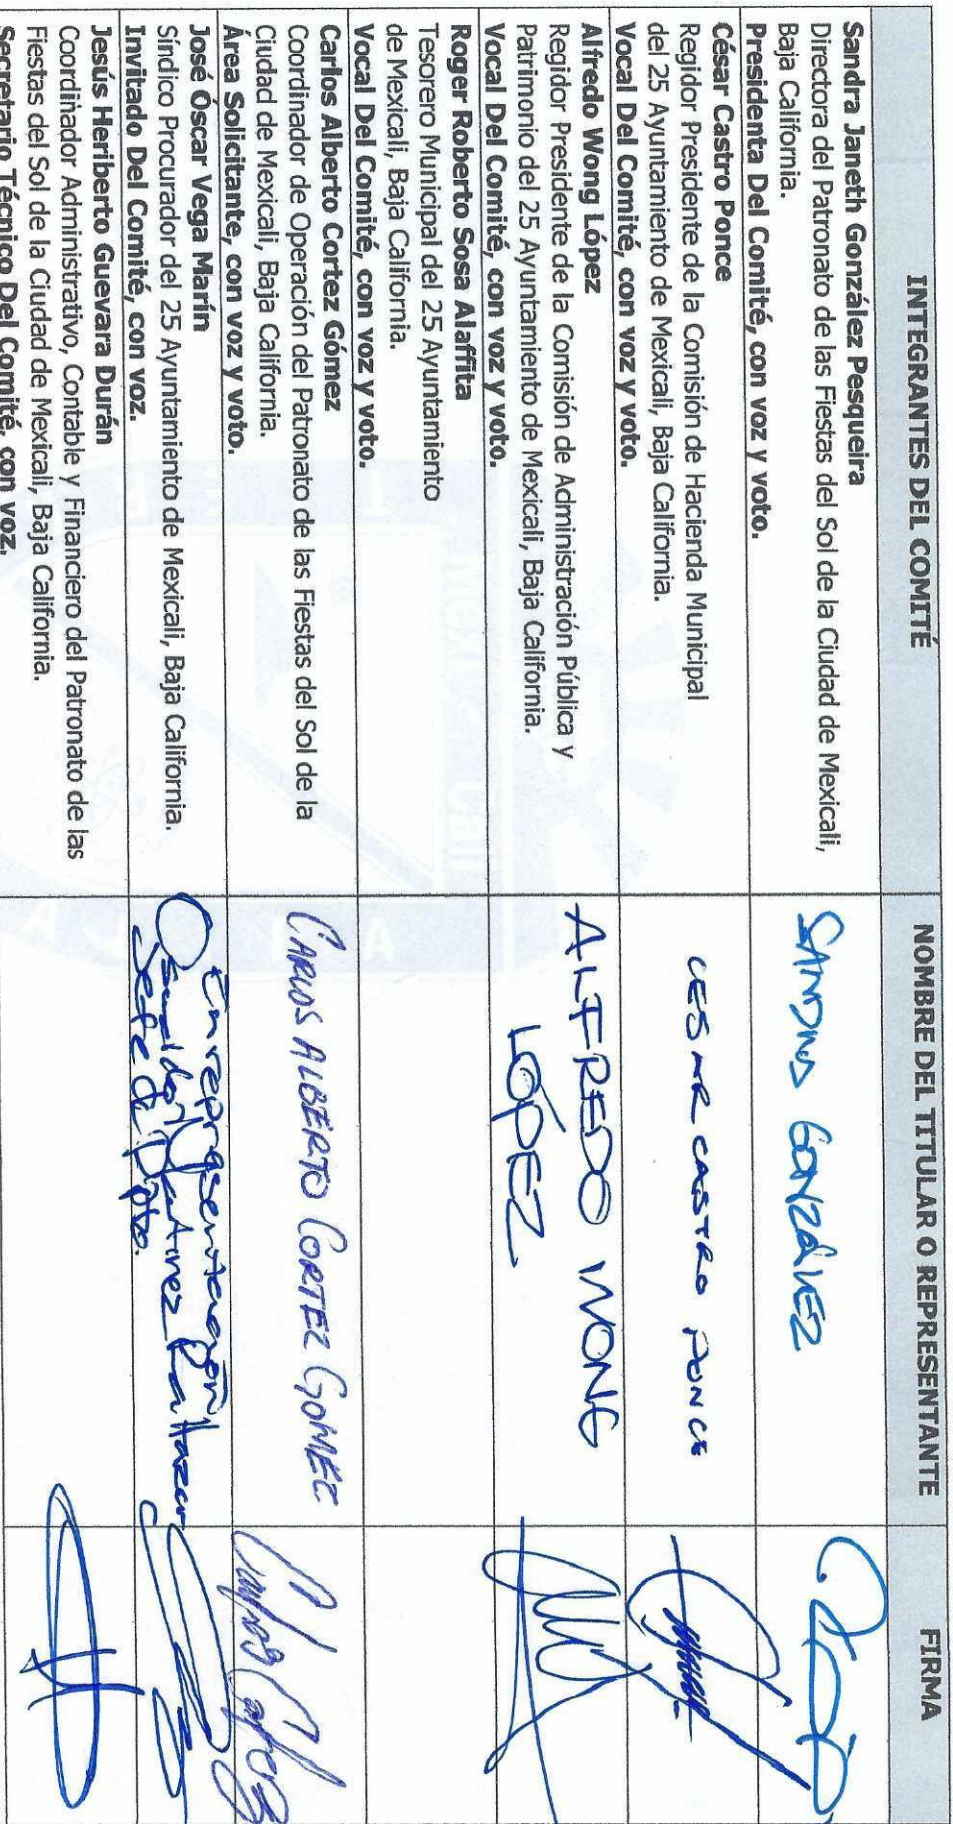 INTEGRANTES DEL COMITÉ
NOMBRE DEL TITULAR O REPRESENTANTE
FIRMA
Sandra Janeth González Pesqueira
Directora del Patronato de las Fiestas del Sol de la Ciudad de Mexicali,
Baja California.
Presidenta Del Comité, con voz y voto.
SANDRA GONZÁLEZ
César Castro Ponce
Regidor Presidente de la Comisión de Hacienda Municipal
del 25 Ayuntamiento de Mexicali, Baja California.
Vocal Del Comité, con voz y voto.
CESAR CASTRO PONCE
Alfredo Wong López
Regidor Presidente de la Comisión de Administración Pública y
Patrimonio del 25 Ayuntamiento de Mexicali, Baja California.
Vocal Del Comité, con voz y voto.
ALFREDO WONG
LÓPEZ
Roger Roberto Sosa Alaffita
Tesorero Municipal del 25 Ayuntamiento
de Mexicali, Baja California.
Vocal Del Comité, con voz y voto.
Carlos Alberto Cortez Gómez
Coordinador de Operación del Patronato de las Fiestas del Sol de la
Ciudad de Mexicali, Baja California.
Área Solicitante, con voz y voto.
CARLOS ALBERTO CORTEZ GOMEZ
Carlos Cortez
José Óscar Vega Marín
Síndico Procurador del 25 Ayuntamiento de Mexicali, Baja California.
Invitado Del Comité, con voz.
En representación
Osvaldo Martinez
Jefe de Dpto.
Jesús Heriberto Guevara Durán
Coordinador Administrativo, Contable y Financiero del Patronato de las
Fiestas del Sol de la Ciudad de Mexicali, Baja California.
Secretario Técnico Del Comité, con voz.